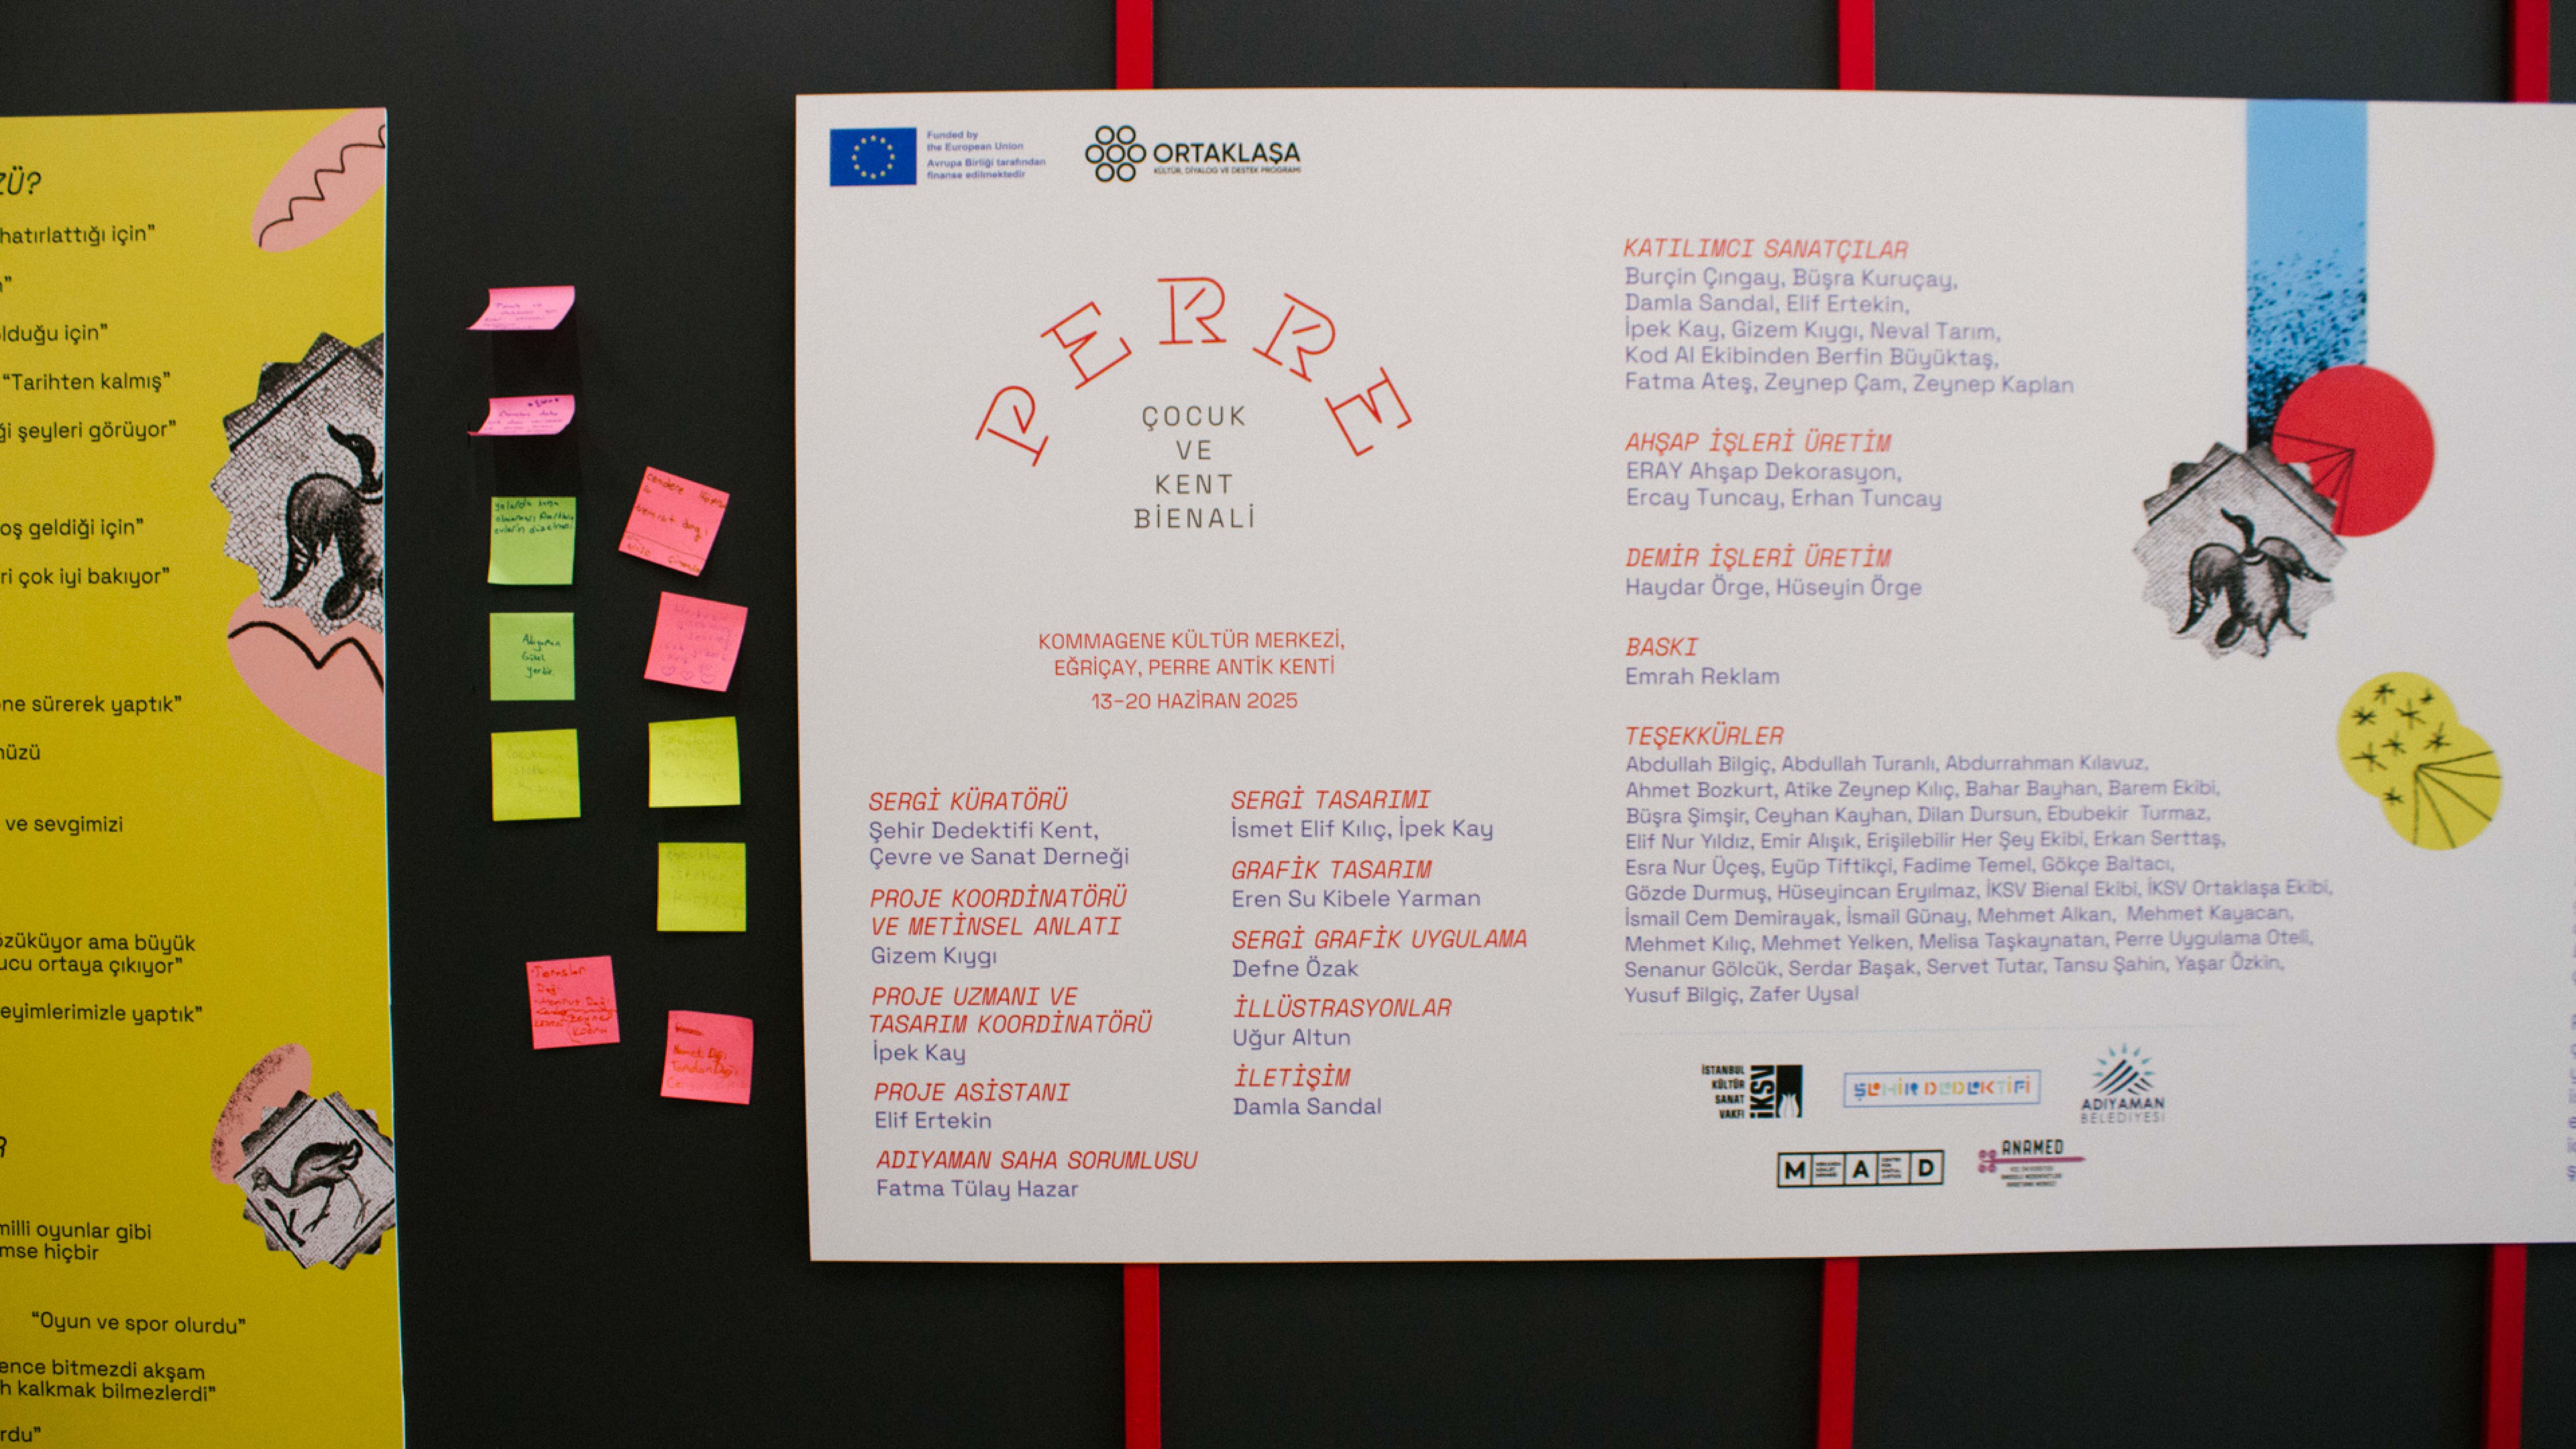 ZÜ?
hatırlattığı için”
n”
olduğu için”
“Tarihten kalmış”
ği şeyleri görüyor”
oş geldiği için”
ri çok iyi bakıyor”
ne sürerek yaptık”
nüzü
ve sevgimizi
özüküyor ama büyük
ucu ortaya çıkıyor”
eyimlerimizle yaptık”
R
milli oyunlar gibi
mse hiçbir
“Oyun ve spor olurdu”
ence bitmezdi akşam
h kalkmak bilmezlerdi”
rdu”
Adıyaman
Güzel
yerdir.
Nemrut dağı
Toroslar
Dağı
Nemrut Dağı
Funded by
the European Union
Avrupa Birliği tarafından
finanse edilmektedir
ORTAKLAŞA
KÜLTÜR, DİYALOG VE DESTEK PROGRAMI
PERRE
ÇOCUK
VE
KENT
BİENALİ
KOMMAGENE KÜLTÜR MERKEZİ,
EĞRİÇAY, PERRE ANTİK KENTİ
13–20 HAZİRAN 2025
SERGİ KÜRATÖRÜ
Şehir Dedektifi Kent,
Çevre ve Sanat Derneği
PROJE KOORDİNATÖRÜ
VE METİNSEL ANLATI
Gizem Kıygı
PROJE UZMANI VE
TASARIM KOORDİNATÖRÜ
İpek Kay
PROJE ASİSTANI
Elif Ertekin
ADIYAMAN SAHA SORUMLUSU
Fatma Tülay Hazar
SERGİ TASARIMI
İsmet Elif Kılıç, İpek Kay
GRAFİK TASARIM
Eren Su Kibele Yarman
SERGİ GRAFİK UYGULAMA
Defne Özak
İLLÜSTRASYONLAR
Uğur Altun
İLETİŞİM
Damla Sandal
KATILIMCI SANATÇILAR
Burçin Çıngay, Büşra Kuruçay,
Damla Sandal, Elif Ertekin,
İpek Kay, Gizem Kıygı, Neval Tarım,
Kod Al Ekibinden Berfin Büyüktaş,
Fatma Ateş, Zeynep Çam, Zeynep Kaplan
AHŞAP İŞLERİ ÜRETİM
ERAY Ahşap Dekorasyon,
Ercay Tuncay, Erhan Tuncay
DEMİR İŞLERİ ÜRETİM
Haydar Örge, Hüseyin Örge
BASKI
Emrah Reklam
TEŞEKKÜRLER
Abdullah Bilgiç, Abdullah Turanlı, Abdurrahman Kılavuz,
Ahmet Bozkurt, Atike Zeynep Kılıç, Bahar Bayhan, Barem Ekibi,
Büşra Şimşir, Ceyhan Kayhan, Dilan Dursun, Ebubekir Turmaz,
Elif Nur Yıldız, Emir Alışık, Erişilebilir Her Şey Ekibi, Erkan Serttaş,
Esra Nur Üçeş, Eyüp Tiftikçi, Fadime Temel, Gökçe Baltacı,
Gözde Durmuş, Hüseyincan Eryılmaz, İKSV Bienal Ekibi, İKSV Ortaklaşa Ekibi,
İsmail Cem Demirayak, İsmail Günay, Mehmet Alkan, Mehmet Kayacan,
Mehmet Kılıç, Mehmet Yelken, Melisa Taşkaynatan, Perre Uygulama Oteli,
Senanur Gölcük, Serdar Başak, Servet Tutar, Tansu Şahin, Yaşar Özkin,
Yusuf Bilgiç, Zafer Uysal
İSTANBUL
KÜLTÜR
SANAT
VAKFI
İKSV
ŞEHİR DEDEKTİFİ
ADIYAMAN
BELEDİYESİ
MAD
ANAMED